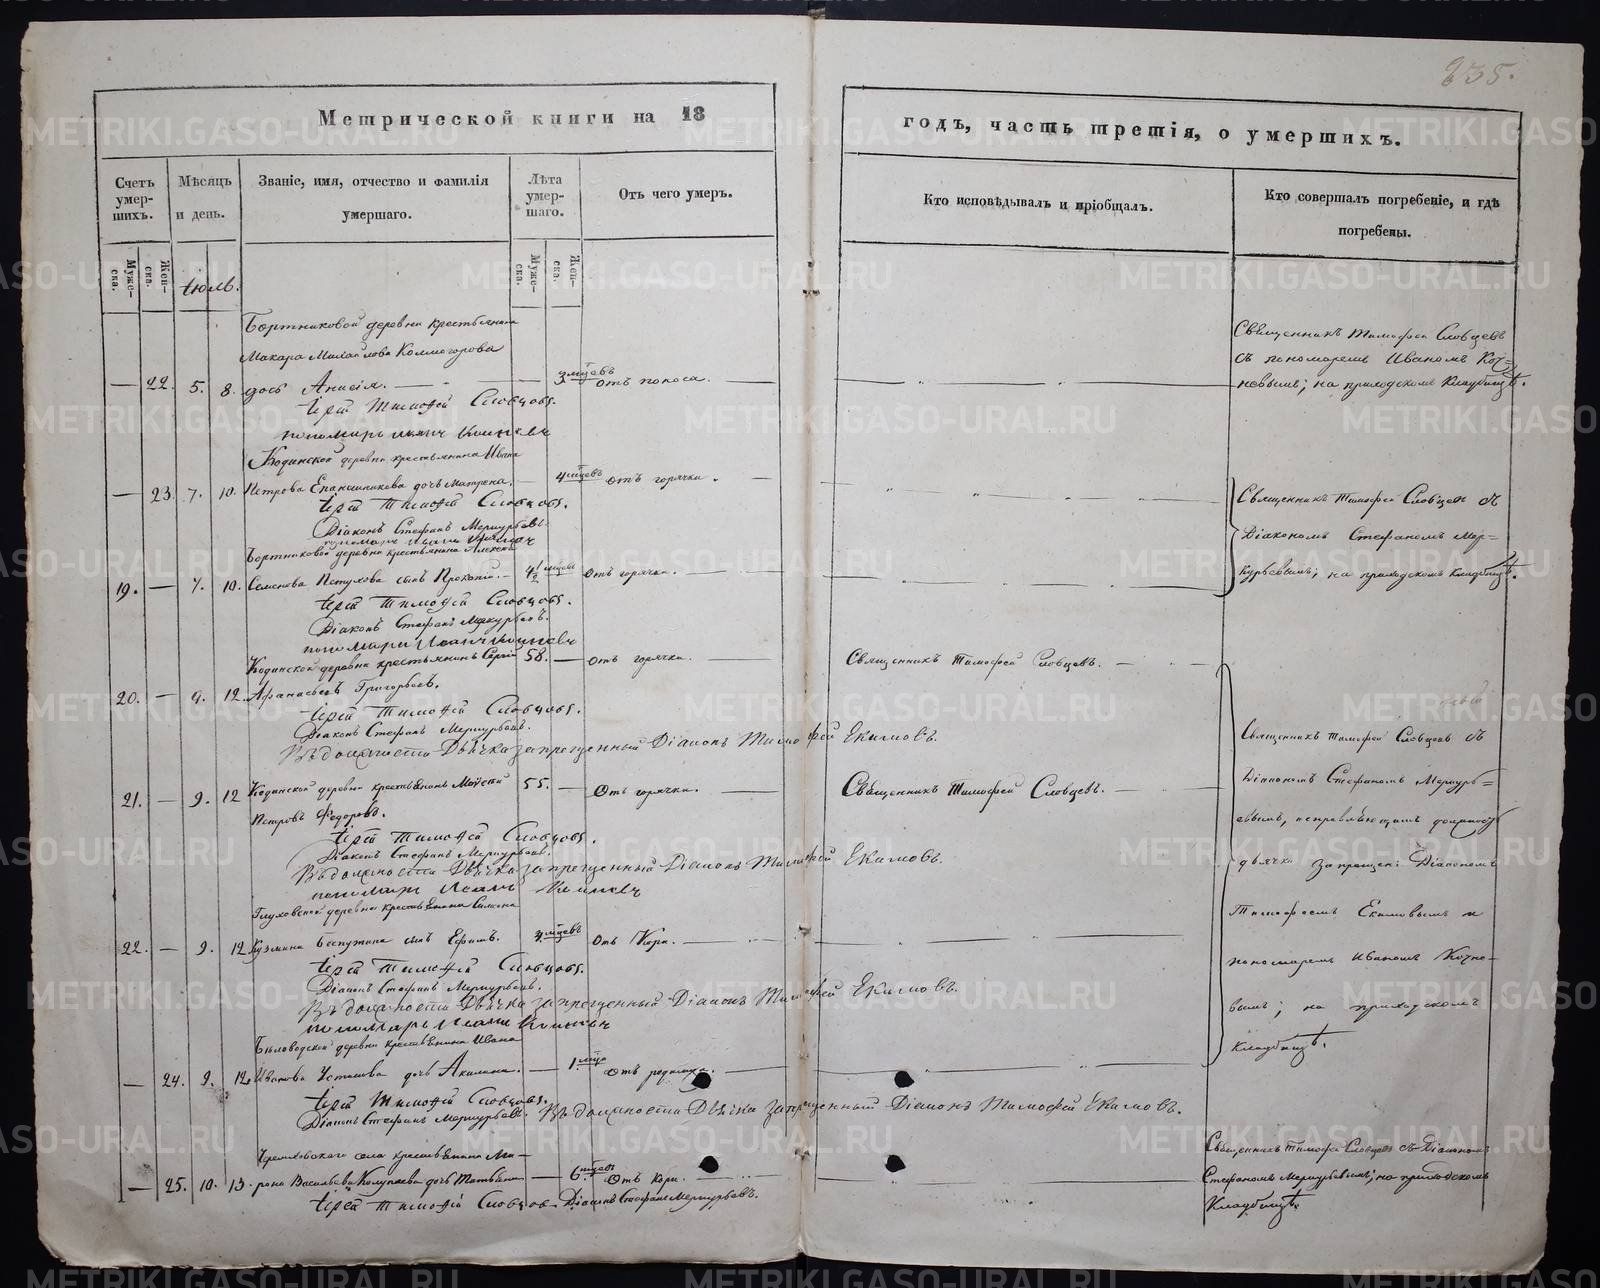 235.
Метрической книги на 18
годъ, часть третія, о умершихъ.
Счетъ умер-шихъ.
Мѣсяцъ и день.
Званіе, имя, отчество и фамилія умершаго.
Лѣта умер-шаго.
Отъ чего умеръ.
Кто исповѣдывалъ и пріобщалъ.
Кто совершалъ погребеніе, и гдѣ погребены.
Муже-ска.
Жен-ска.
Муже-ска.
Жен-ска.
Іюль.
Бортниковой деревни крестьянина
Макара Михайлова Колмогорова
— 22. 5. 8. дочь Анисія. — 3 мцевъ отъ поноса.
Іерей Тимофей Словцовъ.
пономарь Иванъ
Священникъ Тимофей Словцевъ
съ пономаремъ Иваномъ Коч=
невымъ; на приходскомъ кладбищѣ.
Кодинской деревни крестьянина Ивана
— 23. 7. 10. Петрова Епанчинникова дочь Матрена. — 4 мцевъ отъ горячки.
Іерей Тимофей Словцовъ.
Діаконъ Стефанъ Меркурьевъ
Священникъ Тимофей Словцевъ съ
Діакономъ Стефаномъ Мер=
курьевымъ; на приходскомъ кладбищѣ.
Бортниковой деревни крестьянина Алексѣя
19. — 7. 10. Семенова Петухова сынъ Прокопій. — 4½ мцевъ отъ горячки.
Іерей Тимофей Словцовъ.
Діаконъ Стефанъ Меркурьевъ.
пономарь Иванъ
Кодинской деревни крестьянинъ Сергій 58. — отъ горячки.
20. — 9. 12. Афанасьевъ Григорьевъ.
Священникъ Тимофей Словцевъ.
Іерей Тимофей Словцовъ.
Діаконъ Стефанъ Меркурьевъ.
Въ должности Дьячка запрещенный Діаконъ Тимофей Екимовъ.
21. — 9. 12 Кодинской деревни крестьянинъ Моѵсей 55. — Отъ горячки.
Петровъ Федоровъ.
Священникъ Тимофей Словцевъ.
Іерей Тимофей Словцовъ.
Діаконъ Стефанъ Меркурьевъ.
Въ должности Дьячка запрещенный Діаконъ Тимофей Екимовъ.
пономарь Иванъ
Глуховской деревни крестьянина Симона
22. — 9. 12 Кузмина сынъ Ефимъ. 4 мцевъ отъ Кори.
Іерей Тимофей Словцовъ.
Діаконъ Стефанъ Меркурьевъ.
Въ должности Дьячка запрещенный Діаконъ Тимофей Екимовъ.
пономарь Иванъ
Бѣловодской деревни крестьянина Ивана
— 24. 9. 12. Иванова дочь Акилина. — 1. мца отъ родимца
Іерей Тимофей Словцовъ.
Діаконъ Стефанъ Меркурьевъ. Въ должности Дьячка запрещенный Діаконъ Тимофей Екимовъ.
Священникъ Тимофей Словцевъ съ
Діакономъ Стефаномъ Меркурь=
евымъ, исправляющимъ должность
дьячка запрещен: Діакономъ
Тимофеемъ Екимовымъ и
пономаремъ Иваномъ Кочне-
вымъ; на приходскомъ
кладбищѣ.
Черемховскаго села крестьянина Ми-
— 25. 10. 13. рона Васильева дочь Татьяна — 6. мцевъ Отъ кори.
Іерей Тимофей Словцов Діаконъ Стефанъ Меркурьевъ.
Священникъ Тимофей Словцевъ съ Діакономъ
Стефаномъ Меркурьевымъ; на приходскомъ
Кладбищѣ.
METRIKI.GASO-URAL.RU